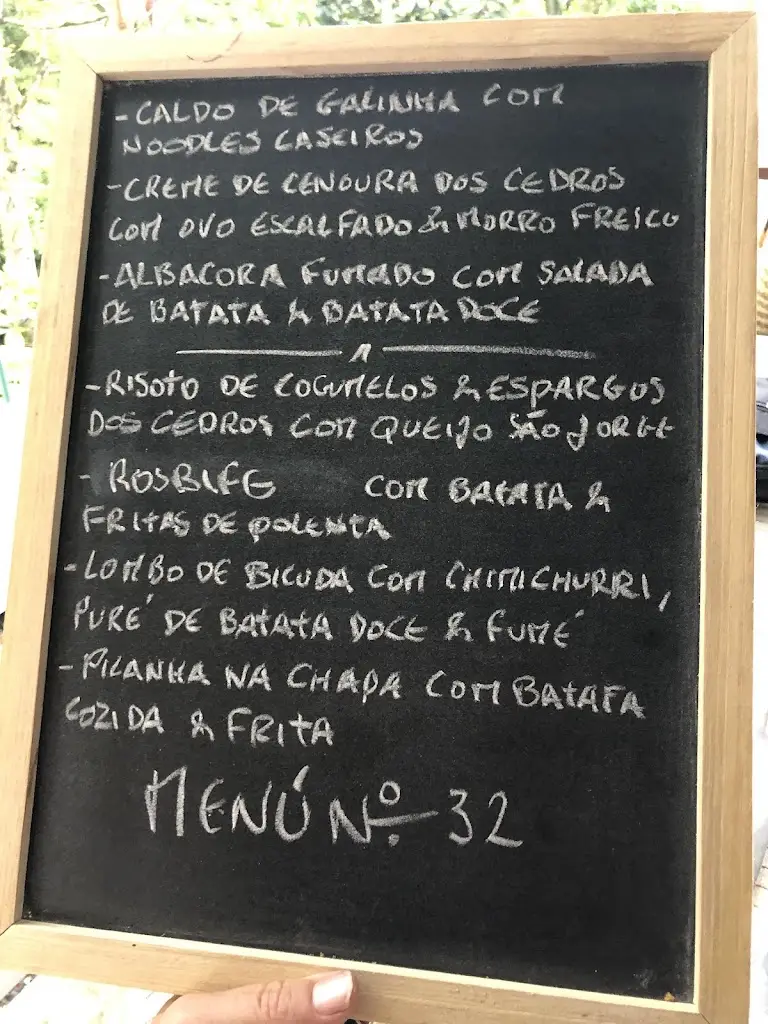 - CALDO DE GALINHA COM
NOODLES CASEIROS
- CREME DE CENOURA DOS CEDROS
COM OVO ESCALFADO & MORRO FRESCO
- ALBACORA FUMADO COM SALADA
DE BATATA & BATATA DOCE
- RISOTO DE COGUMELOS & ESPARGOS
DOS CEDROS COM QUEIJO SÃO JORGE
- ROSBIFE COM BATATA &
FRITAS DE POLENTA
- LOMBO DE BICUDA COM CHIMICHURRI,
PURÉ DE BATATA DOCE & FUMÉ
- PICANHA NA CHAPA COM BATATA
COZIDA & FRITA
MENÚ Nº 32